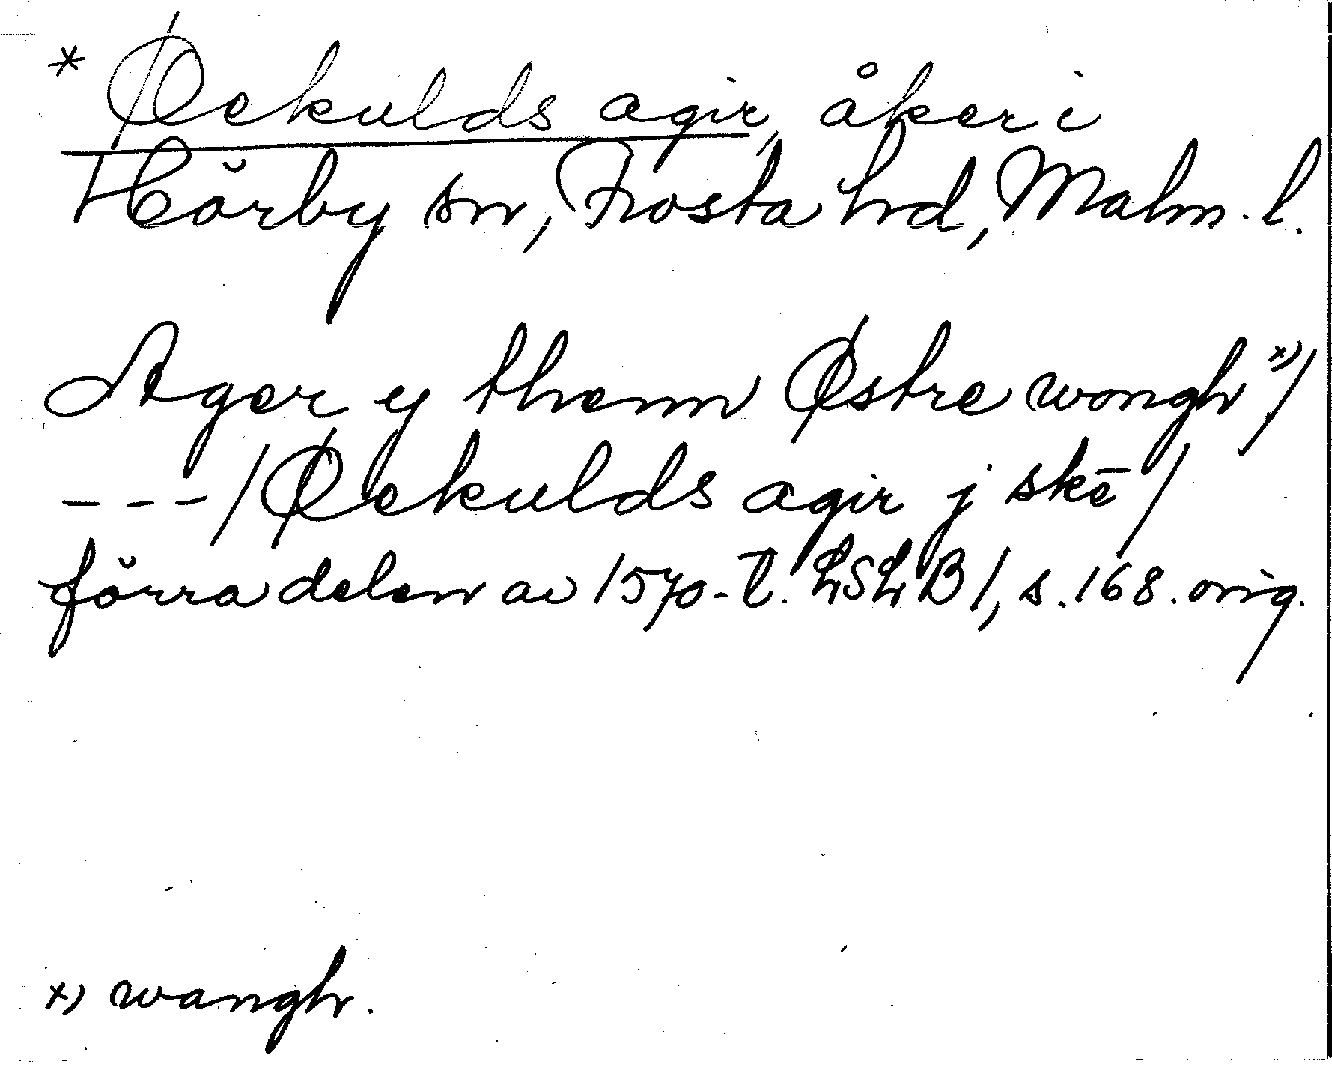 * Øekulds agir, åker i
Hörby sn, Frosta hd, Malm. l.
Ager y thenn Østre wongh x)/
---/Øekulds agir j skē/
förra delen av 1570-t. LSLB 1, s. 168. orig.
x) wangh.